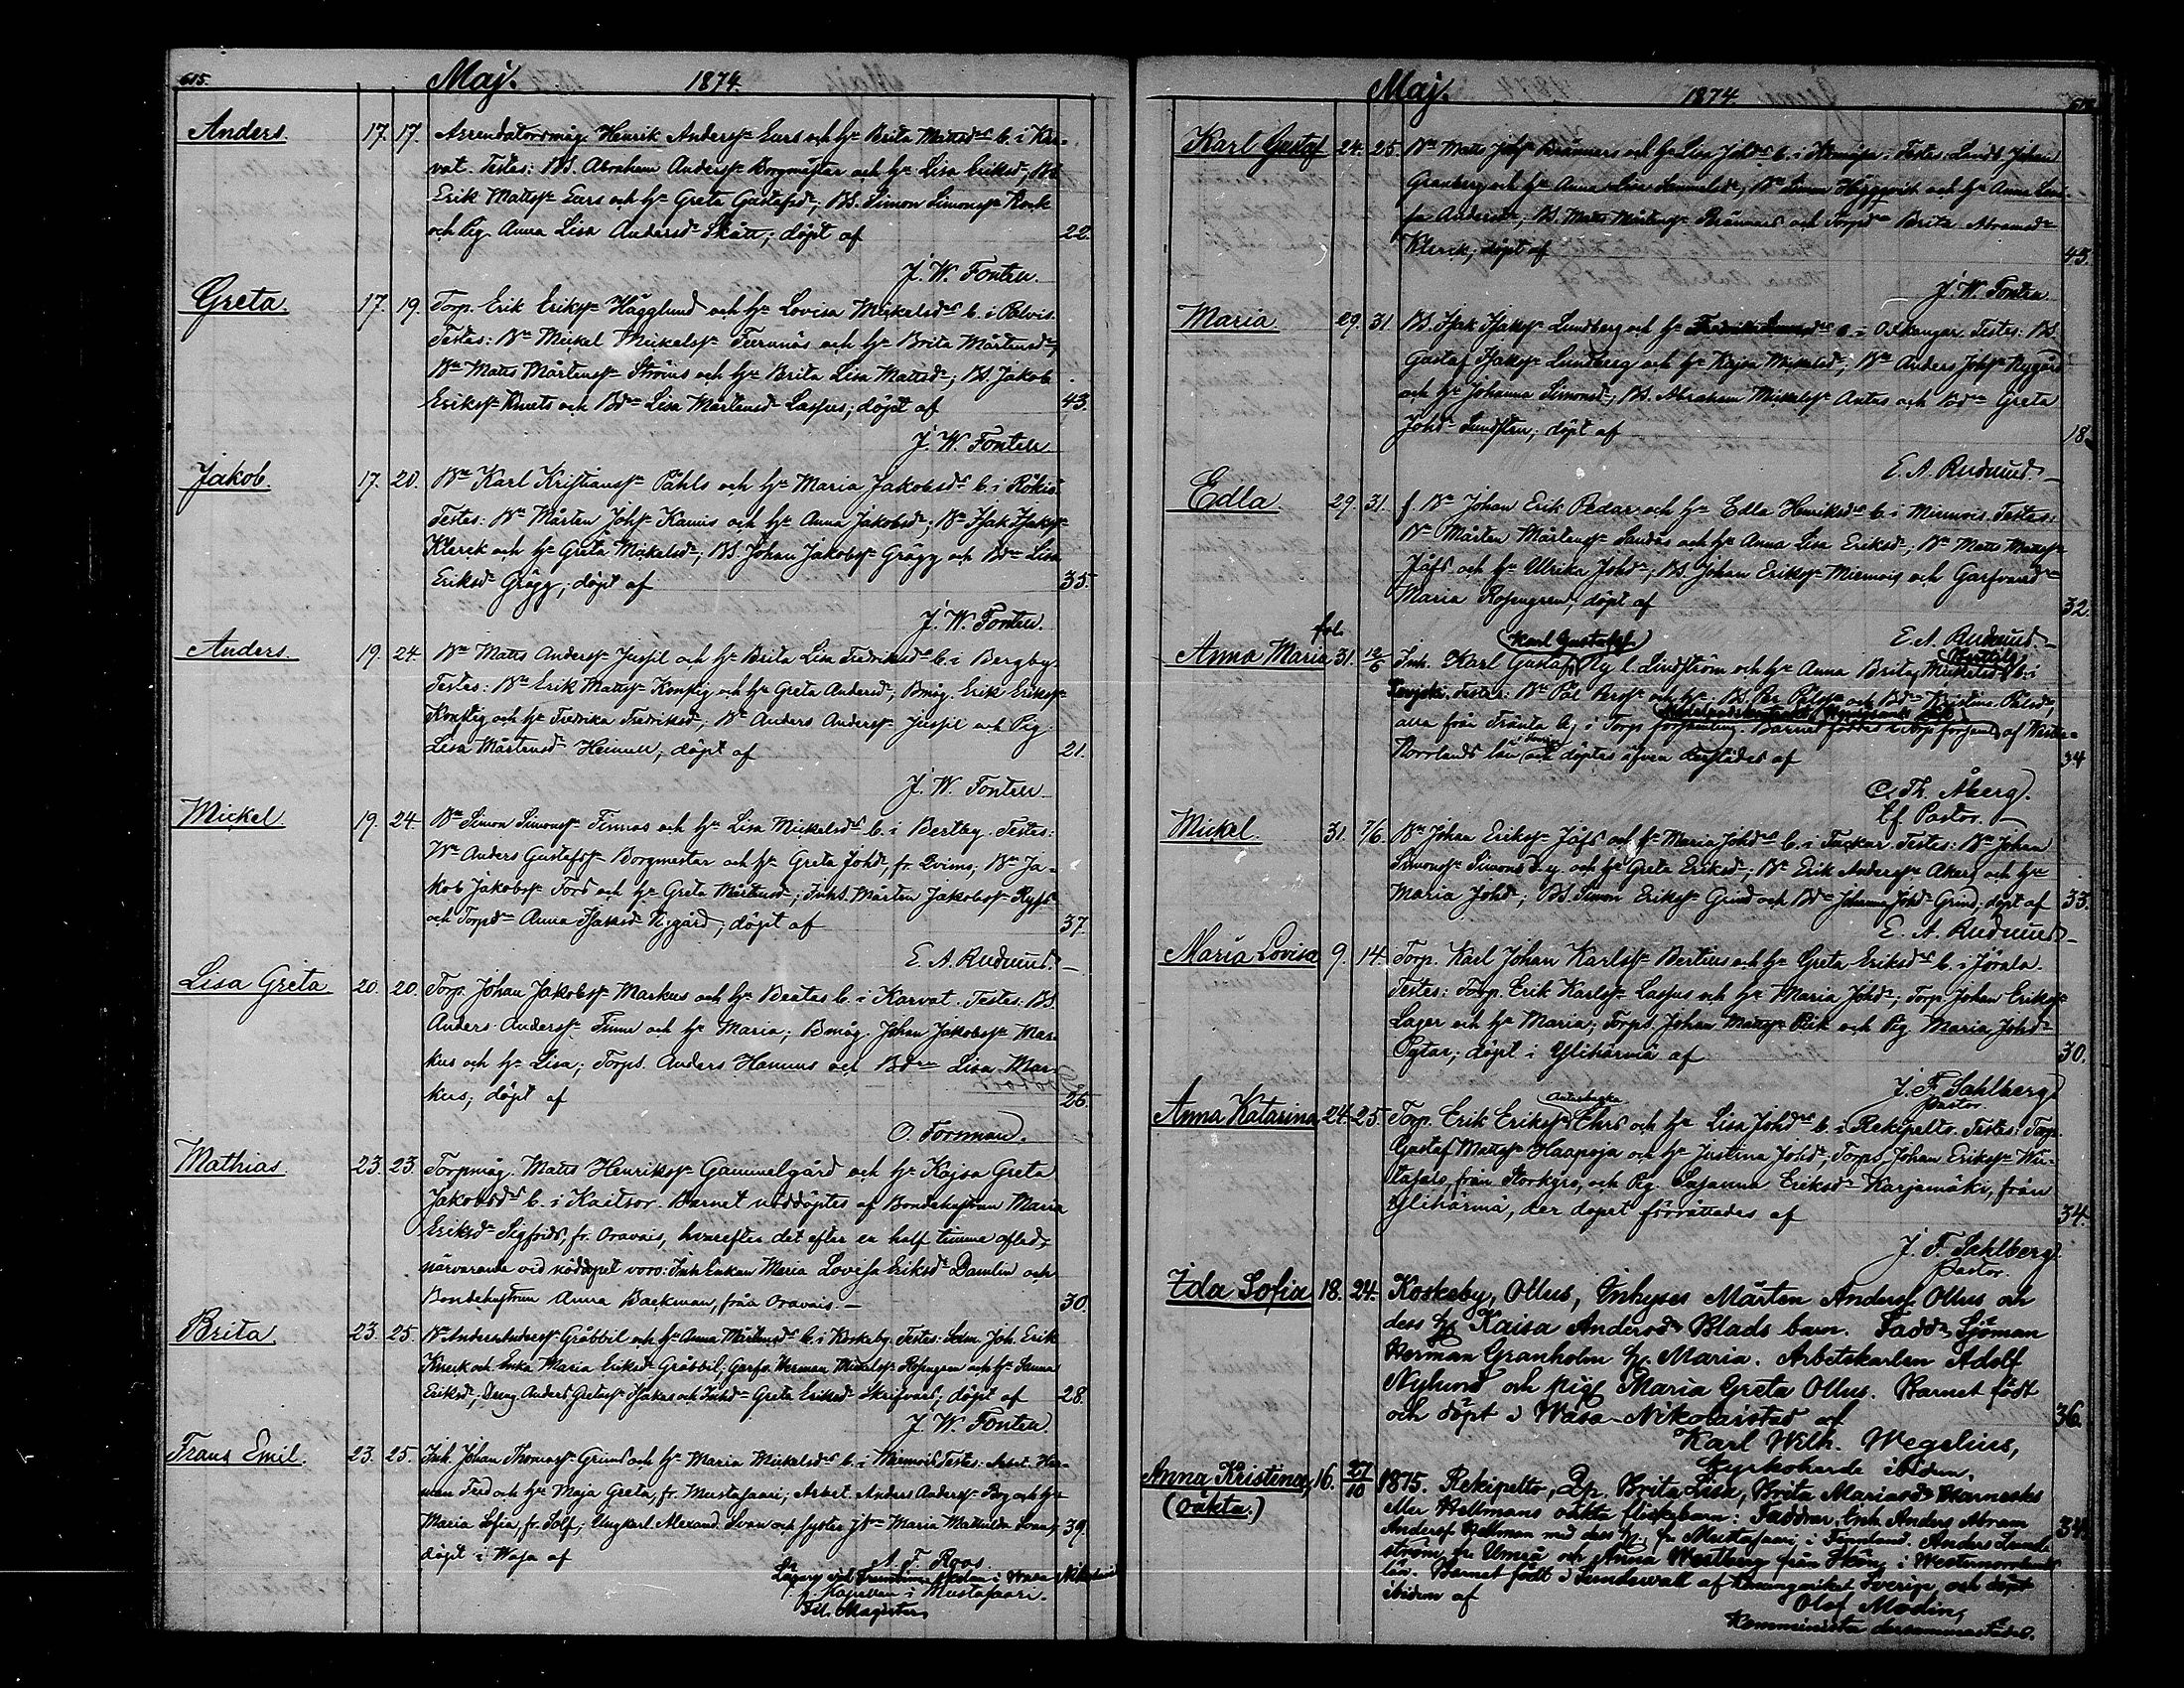 615. Maj. 1874.
Anders. 17. 17. Arrendatorsmåg Henrik Anderss. Ears och h. Brita Mattsds b. i Kar-
vat. Testes: BS. Abraham Anderss. Borgmästar och h. Lisa Eriksd.; BS.
Erik Mattss. Ears och h. Greta Gustafsd.; BS. Simon Simonss. Kock
och Pig. Anna Lisa Andersd. Skått; döpt af 22.
J. W. Fontell.
Greta. 17. 19. Torp. Erik Erikss. Hägglund och h. Lovisa Mickelsds b. i Palvis.
Testes: Bn Mickel Mickelss. Turunäs och h. Brita Mårtensd.;
Bn Matts Mårtenss. Ströms och h. Brita Lisa Mattsd.; BS. Jakob
Erikss. Knuts och Bd. Lisa Mårtensd. Lassus; döpt af 43.
J. W. Fontell
Jakob. 17. 20. Bn Karl Kristianss. Påhls och h. Maria Jakobsds b. i Rökiö.
Testes: Bn Mårten Johs. Kamis och h. Anna Jakobsd.; Bn Isak Isakss.
Klerck och h. Greta Mickelsd.; BS. Johan Jakobss. Grägg och Bd. Lisa
Eriksd. Grägg; döpt af 35.
J. W. Fontell.
Anders. 19. 24. Bn Matts Anderss. Jussil och h. Brita Lisa Fredriksds b. i Bergby.
Testes: Bn Erik Mattss. Konstig och h. Greta Andersd.; Bmåg. Erik Erikss.
Konstig och h. Fredrika Fredriksd.; Bn Anders Anderss. Jussil och Pig.
Lisa Mårtensd. Heinull; döpt af 21.
J. W. Fontell
Mickel. 19. 24. Bn Simon Simonss. Finnas och h. Lisa Mickelsds b. i Bertby. Testes:
Bn Anders Gustafss. Borgmestar och h. Greta Johd., fr. Qvims; Bn Ja-
kob Jakobss. Fors och h. Greta Mårtensd.; Inhs. Mårten Jakobss. Ryss
och Torpd. Anna Isaksd. Nygård; döpt af 37.
E. A. Rudnäs.
Lisa Greta 20. 20. Torp. Johan Jakobss. Markus och h. Beatas b. i Karvat. Testes: BS.
Anders Anderss. Finne och h. Maria; Bmåg. Johan Jakobss. Mar-
kus och h. Lisa; Torps. Anders Hannus och Bd. Lisa Mar-
kus; döpt af 26.
O. Forsman.
Mathias. 23. 23. Torpmåg. Matts Henrikss. Gammelgård och h. Kajsa Greta
Jakobsds b. i Kaitsor. Barnet nöddöptes af Bondehustrun Maria
Eriksd. Sigfrids, fr. Oravais, hvarefter det efter en half timma afled;
närvarande vid nöddopet voro: Inh. Enkan Maria Lovisa Eriksd. Damlin och
Bondehustrun Anna Backman, från Oravais. 30.
Brita 23. 25. Bn Anders Anderss. Gråbbil och h. Anna Mårtensds b. i Koskeby. Testes: Som. Joh. Erik
Knuck och Enka Maria Eriksd. Gråbbil; Garfv. Herman Mickelss. Rosengren och h. Sanna
Eriksd.; Dreng Anders Gretass. Isakas och Inhd. Greta Eriksd. Skrifvars; döpt af 28.
J. W. Fontell.
Frans Emil. 23. 25. Inh. Johan Thomass. Grind och h. Maria Mickelsds b. i Miemois. Testes: Arbet. Her-
man Fred och h. Maja Greta, fr. Mustasaari; Arbet. Anders Anderss. Boy och h.
Maria Sofia, fr. Solf; Ungkarl. Alexand. Svan och syster J. Maria Mathilda Svan; 39.
döpt i Wasa af
A. F. Roos
i Wasa Nikolaistad
f. Kapellan i Mustasaari.
Fil. Magister
Maj. 1874
Karl Gustaf 24. 25. Bn Matts Johs. Brännars och h. Lisa Johds b. i Kimo. Testes: Landb. Johan
Granberg och h. Anna Lisa Samuelsd.; Bn Simon Häggqvist och h. Anna Lovi-
sa Andersd.; BS. Matts Mårtenss. Brännars och Torpd. Brita Abramsd.
Klerck; döpt af 43.
J. W. Fontell
Maria 29. 31. BS. Isak Isakss. Lundberg och h. b. i Oxkangar. Testes: BS.
Gustaf Isakss. Lundberg och h. Kajsa Mickelsd.; Bn Anders Johs. Nygård
och h. Johanna Simonsd.; BS. Abraham Mickelss. Antus och Bd. Greta
Johd. Lundsten; döpt af 18.
E. A. Rudnäs.
Edla 29. 31. f. Bn Johan Erik Pedar och h. Edla Henriksds b. i Miemois. Testes:
Bn Mårten Mårtenss. Sandås och h. Anna Lisa Eriksd.; Bn Matts Mattss.
Jåfs och h. Ulrika Johd.; BS. Johan Erikss. Miemois och Garfvared.
Maria Rosengren; döpt af 32.
E. A. Rudnäs.
Anna Maria 31. 12/6 Inh. Karl Gustafs. Ny l. Lindström och h. Anna Brita Mickelsds b. i
Testes: Bn Pål Perss. och h.; BS. Per Pålss. och Bd. Kristina Pålsd.,
alla från Fränta by i Torps församling. Barnet föddes i Torps församl. af Wester-
Norrlands län och döptes äfven derstädes af 34
C. Th. Åberg.
tf. Pastor.
Mickel. 31. 7/6. Bn Johan Erikss. Jåfs och h. Maria Johds b. i Tuckar. Testes: Bn Johan
Simonss. Simons d.y. och h. Greta Eriksd.; Bn Erik Anderss. Akers och h.
Maria Johd.; BS. Simon Erikss. Grind och Bd. Johanna Johd. Grind; döpt af 33.
E. A. Rudnäs
Maria Lovisa 9. 14. Torp. Karl Johan Karlss. Bertius och h. Greta Eriksds b. i Jörala.
Testes: Torp. Erik Karlss. Lassus och h. Maria Johd.; Torp. Johan Erikss.
Lager och h. Maria; Torps. Johan Mattss. Piik och Pig. Maria Johd.
Pytar; döpt i Ylihärmä af 30.
J. F. Sahlberg
Pastor.
Anna Katarina 24. 25. Torp. Erik Erikss. Ehrs och h. Lisa Johds b. i Rekipelto. Testes: Torp.
Gustaf Mattss. Haapoja och h. Justina Johd.; Torps. Johan Erikss. Wu-
, från Storkyro, och Pig. Susanna Eriksd. Karjamäki, från
Ylihärmä, der dopet förrättades af 34.
J. F. Sahlberg
Pastor.
Ida Sofia 18. 24. Koskeby, Ollus, Inhyses Mårten Anderss. Ollus och
dess h. Kaisa Andersds Blads barn. Faddr. Sjöman
Herman Granholm h. Maria. Arbetskarlen Adolf
Nylund och pig. Maria Greta Ollus. Barnet födt
och döpt i Wasa-Nikolaistad af 36.
Karl Wilh. Wegelius,
Kyrkoherde ibidem.
Anna Kristina, 16. 27/10 1875. Rekipelto, Qp. Brita Lisa, Brita Mariasds Harnesks
(oäkta.) eller Hellmans oäkta flickebarn: Faddrar, Inh. Anders Abram
Anderss. Hellman med dess h. fr. Mustasaari i Finnland. Anders Lund- 34.
ström, fr. Umeå och Anna Westberg från Hörn, i Westernorrlands
län. Barnet födt i Sundswall af Konungariket Sverige, och döpt
ibidem af
Olof Modin,
Komminister dersammastädes.